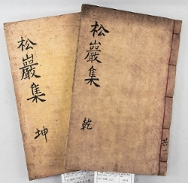 松巖集
乾
松巖集
坤